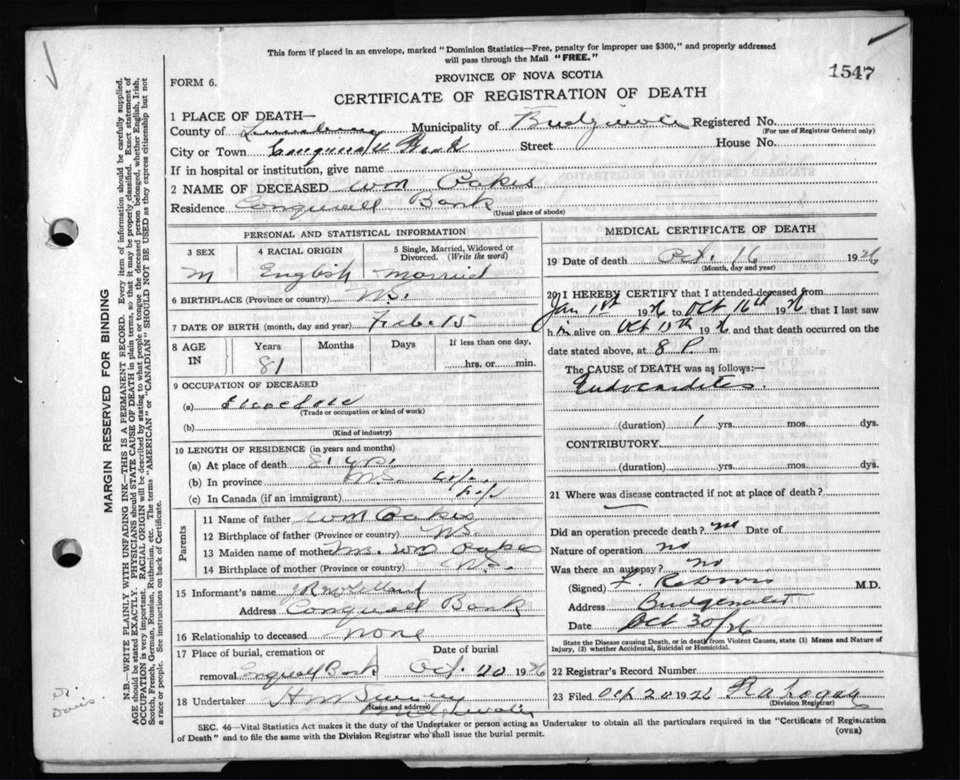 This form if placed in an envelope, marked "Dominion Statistics—Free, penalty for improper use $300," and properly addressed
will pass through the Mail "FREE."
1547
FORM 6.
PROVINCE OF NOVA SCOTIA
CERTIFICATE OF REGISTRATION OF DEATH
1 PLACE OF DEATH—
County of Lunenburg Municipality of Bridgewater Registered No.
(For use of Registrar General only)
City or Town Conquerall Bank Street House No.
If in hospital or institution, give name
2 NAME OF DECEASED Wm Oakes
Residence Conquerall Bank
(Usual place of abode)
PERSONAL AND STATISTICAL INFORMATION
3 SEX 4 RACIAL ORIGIN 5 Single, Married, Widowed or Divorced. (Write the word)
M English Married
6 BIRTHPLACE (Province or country) N.S.
7 DATE OF BIRTH (month, day and year) Feb. 15
8 AGE IN Years Months Days If less than one day,
81 hrs. or min.
9 OCCUPATION OF DECEASED
(a)
(Trade or occupation or kind of work)
(b)
(Kind of industry)
10 LENGTH OF RESIDENCE (in years and months)
(a) At place of death 81 yrs.
(b) In province N.S. life
(c) In Canada (if an immigrant) life
Parents
11 Name of father Wm Oakes
12 Birthplace of father (Province or country) N.S.
13 Maiden name of mother Mrs. Wm Oakes
14 Birthplace of mother (Province or country) N.S.
15 Informant's name
Address Conquerall Bank
16 Relationship to deceased none
17 Place of burial, cremation or Date of burial
removal Conquerall Bank Oct. 20 1926
18 Undertaker H M
(Name and address)
Bridgewater
MEDICAL CERTIFICATE OF DEATH
19 Date of death Oct. 16 1926
(Month, day and year)
20 I HEREBY CERTIFY that I attended deceased from
Jan 1st 1926 to Oct 16th 1926, that I last saw
him alive on Oct 15th 1926, and that death occurred on the
date stated above, at 8 P. m.
The CAUSE of DEATH was as follows:—
Endocarditis.
(duration) 1 yrs. mos. dys.
CONTRIBUTORY
(duration) yrs. mos. dys.
21 Where was disease contracted if not at place of death?
Did an operation precede death? no Date of
Nature of operation no
Was there an autopsy? no
(Signed) M.D.
Address Bridgewater
Date Oct 30/26
State the Disease causing Death, or in death from Violent Causes, state (1) Means and Nature of
Injury, (2) whether Accidental, Suicidal or Homicidal.
22 Registrar's Record Number
23 Filed Oct 20 1926
(Division Registrar)
SEC. 46—Vital Statistics Act makes it the duty of the Undertaker or person acting as Undertaker to obtain all the particulars required in the "Certificate of Registration
of Death" and to file the same with the Division Registrar who shall issue the burial permit.
(OVER)
MARGIN RESERVED FOR BINDING
N.B.—WRITE PLAINLY WITH UNFADING INK—THIS IS A PERMANENT RECORD. Every item of information should be carefully supplied.
AGE should be stated EXACTLY. PHYSICIANS should STATE CAUSE OF DEATH in plain terms, so that it may be properly classified. Exact statement of
OCCUPATION is very important. RACIAL ORIGIN will be described by stating to what people or tongue the deceased person belonged, whether English, Irish,
Scotch, French, German, Russian, Ruthenian, etc. The terms "AMERICAN" or "CANADIAN" SHOULD NOT BE USED as they express citizenship but not
a race or people. See instructions on back of Certificate.
Dr.
Davis